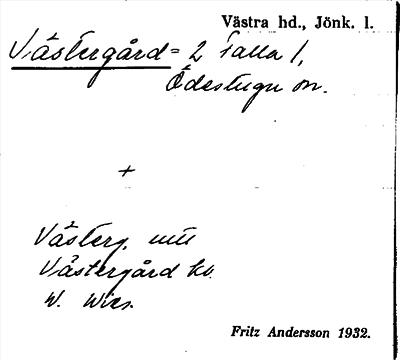 Västra hd., Jönk. l.
Västergård = 2 Talla 1,
Ödestugu sn.
+
Västerg.
Västergård kv.
W. Wies.
Fritz Andersson 1932.